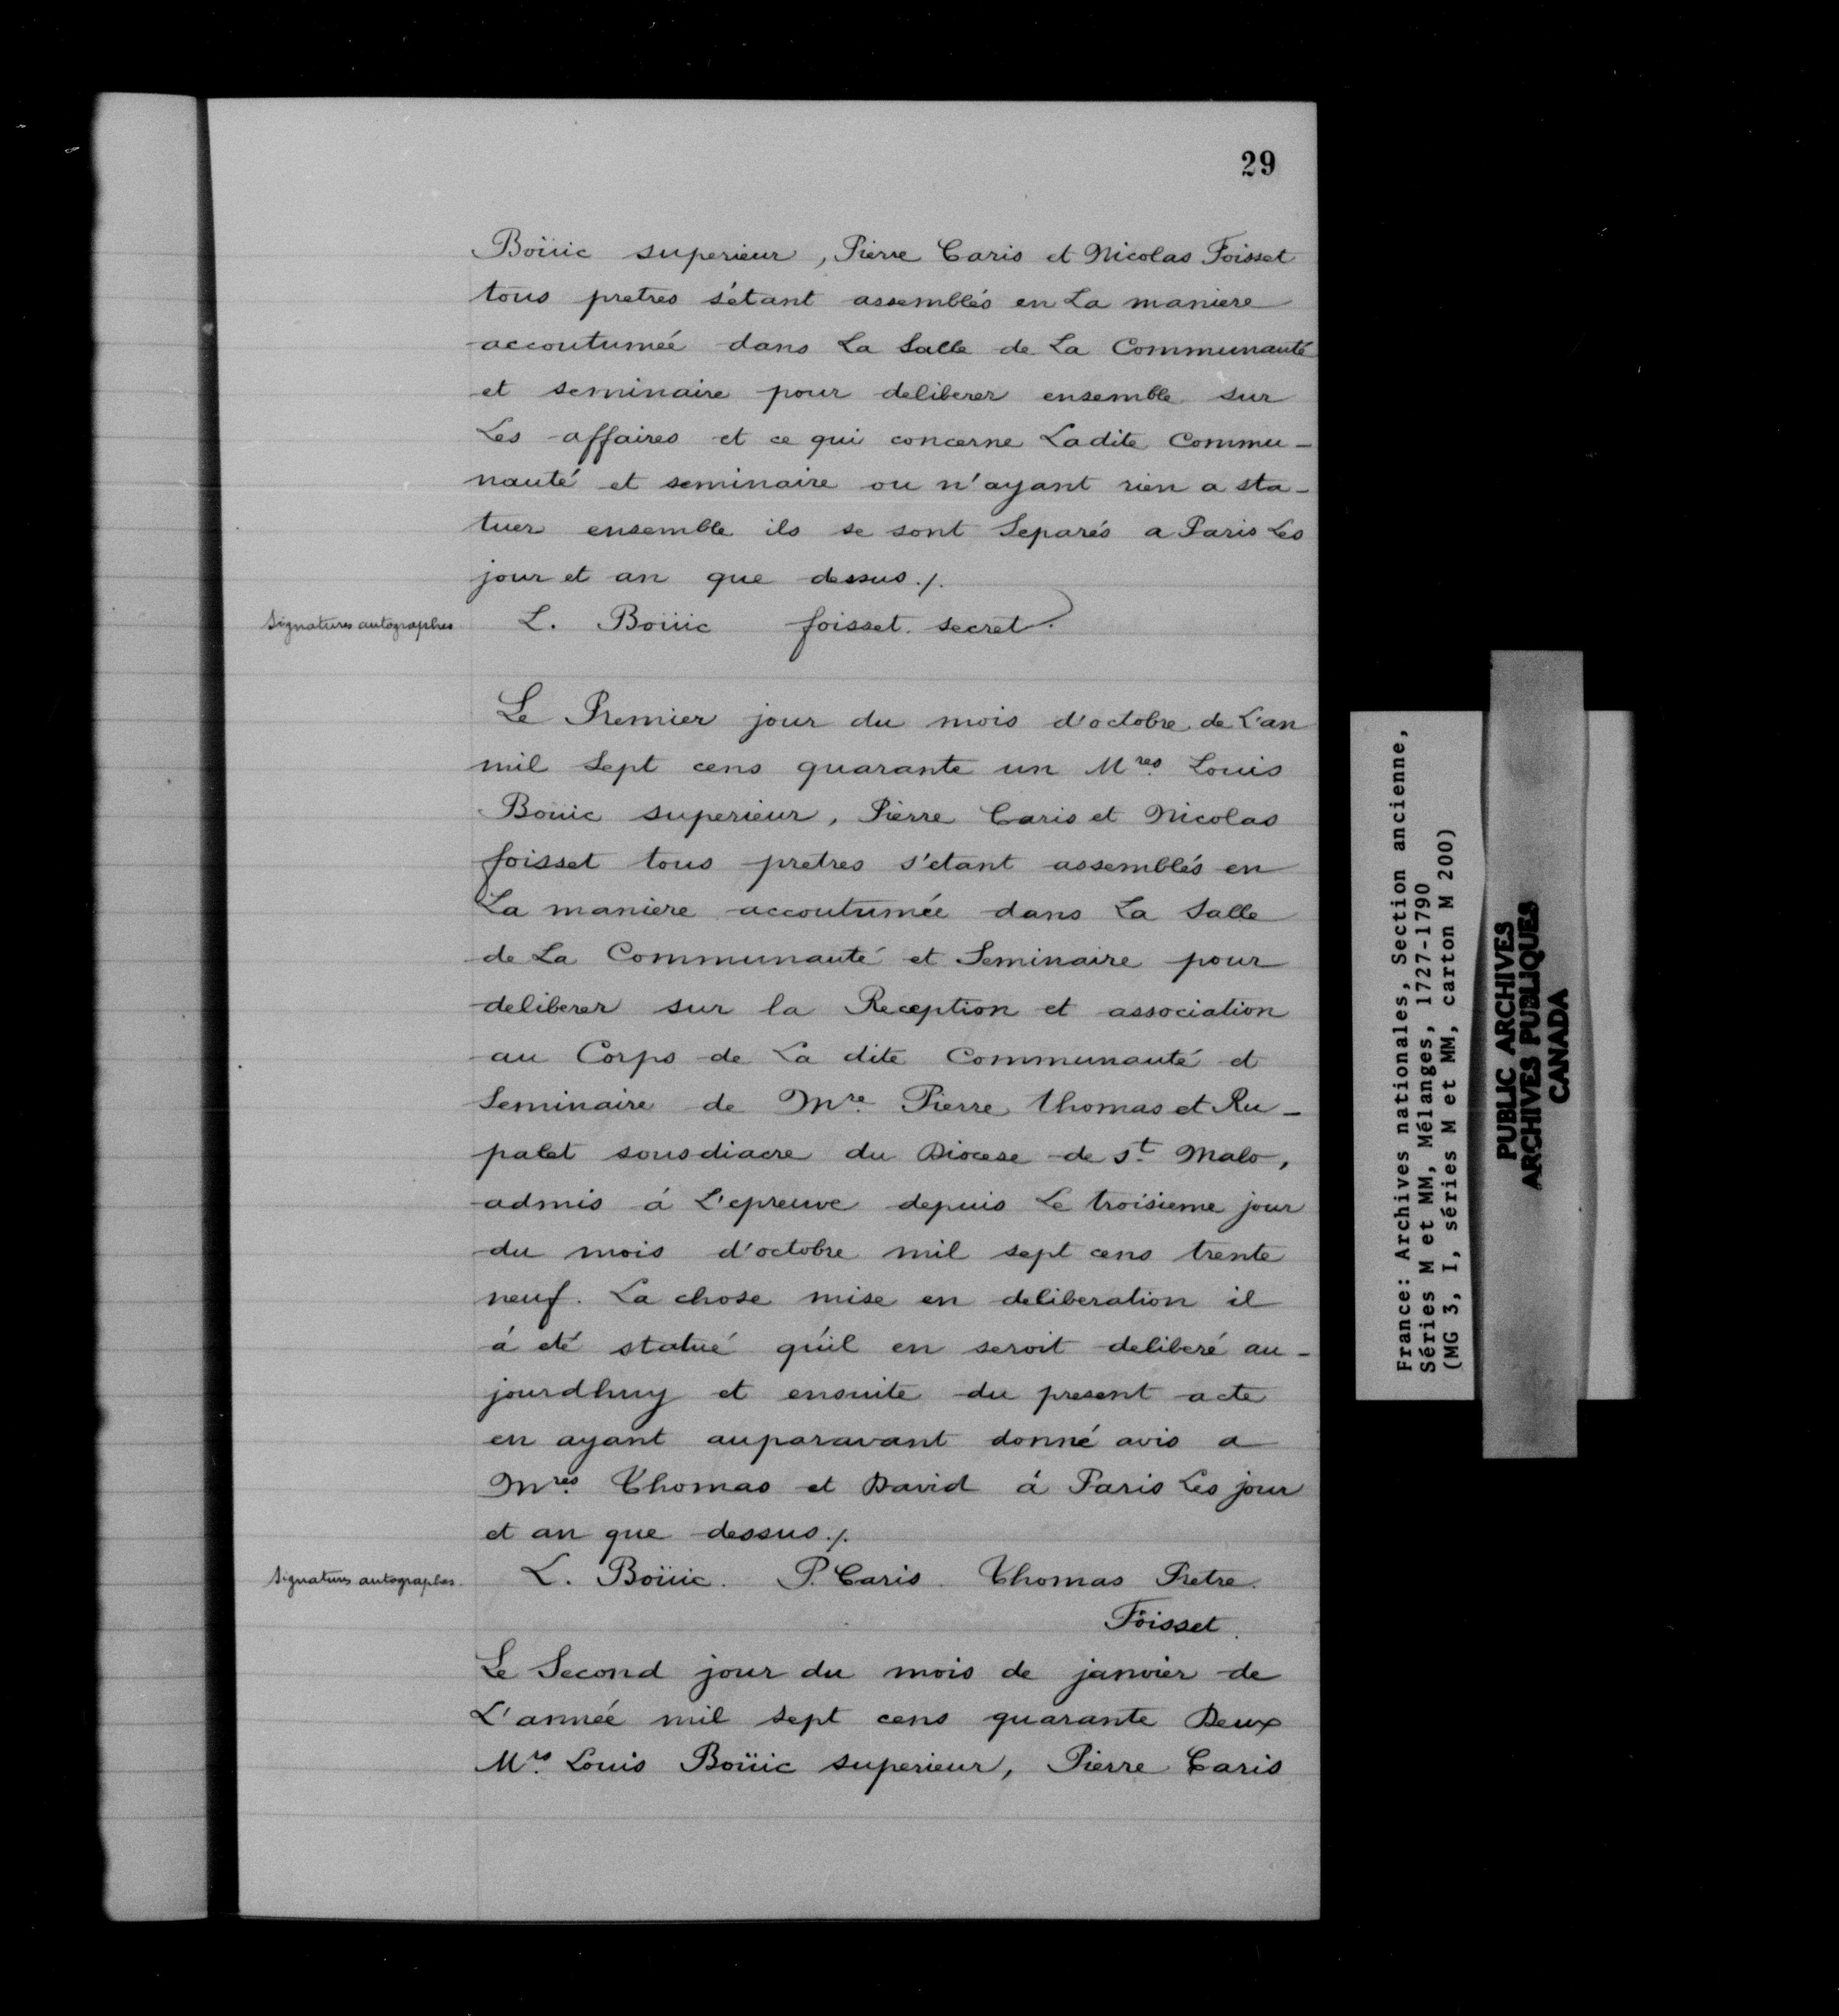 29
Boüic superieur, Pierre Caris et Nicolas Foisset
tous pretres s'étant assemblés en La maniere
accoutumée dans La Salle de La Communauté
et seminaire pour deliberer ensemble sur
Les affaires et ce qui concerne Ladite Commu-
nauté et seminaire ou n'ayant rien a sta-
tuer ensemble ils se sont Separés a Paris Les
jour et an que dessus./.
Signatures autographes L. Boüic foisset. secret.
Le Premier jour du mois d'octobre de L'an
mil Sept cens quarante un Mres Louis
Boüic superieur, Pierre Caris et Nicolas
foisset tous pretres s'etant assemblés en
La maniere accoutumée dans La Salle
de La Communauté et Seminaire pour
deliberer sur la Reception et association
au Corps de La dite Communauté et
Seminaire de Mre Pierre Thomas et Ru-
palet sousdiacre du Diocese de St Malo,
admis á L'epreuve depuis Le troisieme jour
du mois d'octobre mil sept cens trente
neuf. La chose mise en deliberation il
á eté statué qu'il en seroit deliberé au-
jourdhuy et ensuite du present acte
en ayant auparavant donné avis a
Mres Thomas et David á Paris Les jour
et an que dessus./.
Signatures autographes. L. Boüic. P. Caris. Thomas Pretre.
Foisset.
Le Second jour du mois de janvier de
L'année mil Sept cens quarante Deux
Mrs Louis Boüic superieur, Pierre Caris
France: Archives nationales, Section ancienne,
Séries M et MM, Mélanges, 1727-1790
(MG 3, I, séries M et MM, carton M 200)
PUBLIC ARCHIVES
ARCHIVES PUBLIQUES
CANADA